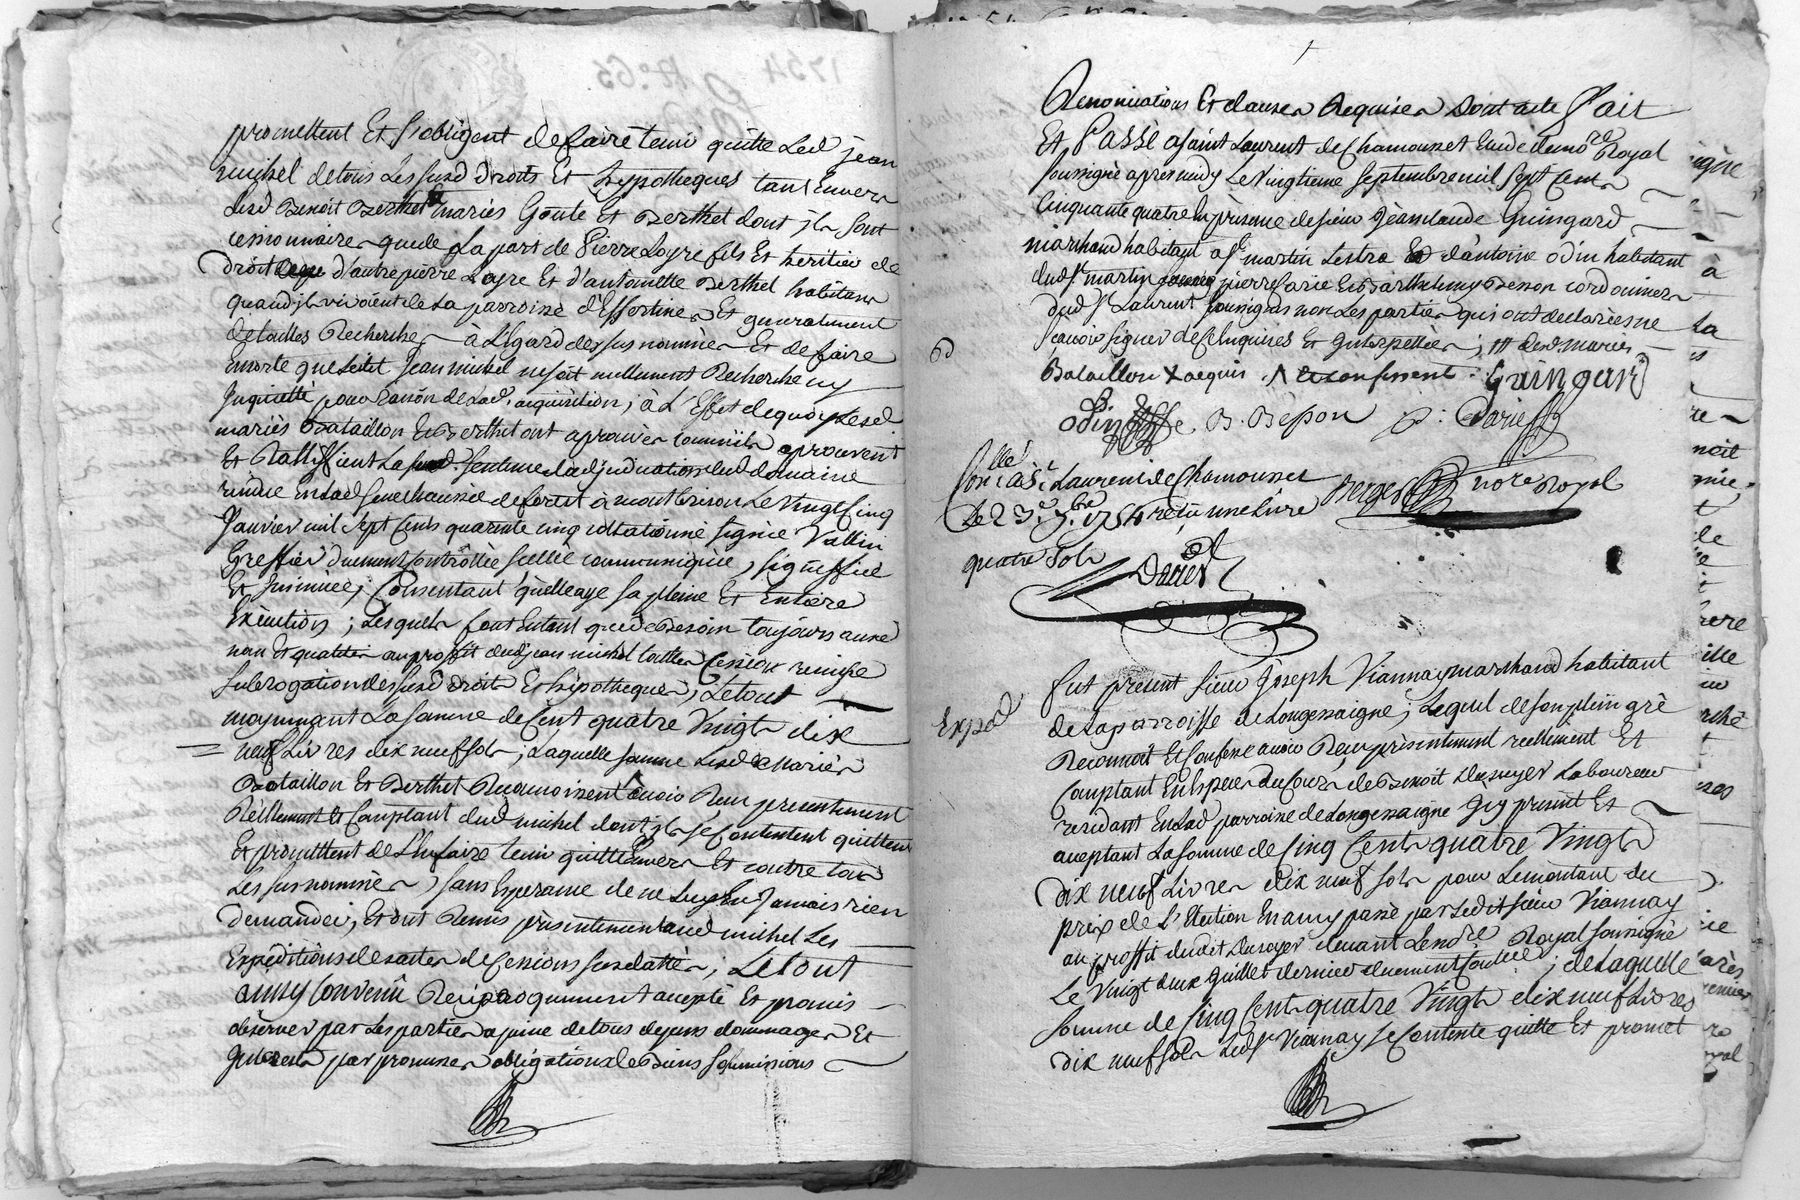 promettent Et s'obligent de faire tenir quitte Led jean
michel de tous Les susd droits Et hypotheques tant Envers
Lesd Benoit Berthet mariés Goute Et Berthet dont ils sont
cessionnaires que de La part de Pierre Loyre fils Et heritier de
droit d'autre pierre Loyre Et d'antoinette Berthet habitans
quand ils vivoient de La parroisse d'Essertines Et generalement
de toutes Recherches à L'Egard des sus nommés Et de faire
Ensorte que Ledit Jean michel ne soit nullement Recherché ny
Inquietté pour raison de Lad. acquisition; à L'Effet de quoy Lesd
mariés Bataillon Et Berthet ont aprouvés comme ils aprouvent
Et Rattiffient La susd. sentence d'adjudication dud domaine
rendue En Lad Senechaussée de forest à montbrison Le Vingt Cinq
Janvier mil sept Cents quarante cinq collationné signée Vallin
Greffier düement Controllée scellée communiquée, signiffiée
Et Insinuée, Consentant qu'elle aye sa pleine Et Entière
Exécution; Lesquels font Entant que de Besoin toujours aux d
nom Et qualités au proffit dud jean michel toutes Cession remise
subrogation des susd droits Et hipotheques, Le tout
moyennant La somme de Cent quatre Vingt dix
neuf Livres dix neuf sols; Laquelle somme Lesd Mariés
Bataillon Et Berthet Reconnoissent avoir Reçu presentement
Réellement Et Comptant dud michel dont ils se Contentent quittent
Et promettent de L'En faire tenir quitte Envers Et contre tous
Les sus nommés, sans Esperance de ne Luy En Jamais rien
demander, Et ont Remis presentement aud michel Les
Expeditions desactes de Cessions susdattés; Le tout
ainsy Convenû Reciproquement accepté Et promis
observer par Les parties a peine de tous depens dommages Et
Interets par promesses obligation de Biens soumissions
Renonciations Et clauses Requises Dont acte Fait
Et Passé a saint Laurent de Chamousset Etude du nore Royal
soussigné après midy Le Vingtieme septembre mil sept Cents
Cinquante quatre En presence de sieur Jean claude Guingard
marchand habitant a st martin Lestra Et d'antoine odin habitant
dud st martin pierre Carie Et Barthelemy Besson cordonniers
dud st Laurent soussignés non Les parties qui ont declarées ne
scavoir signer de Ce Enquises Et Interpellées; Lesd mariés
Bataillon
Guingard
odin B. Bésson P. Darieff
Conllé à St Laurent de Chamousset
Le 23e 7bre 1754 reçu une Livre
quatre sols
Berger nore Royal
Daries
Exped
Fut present sieur Joseph Viannay marchand habitant
de La parroisse de Longessaigne; Lequel de son plein gré
Reconnoit Et Confesse avoir Reçu présentement reellement Et
Comptant En Especes du Cours de Benoit Dusuyer Laboureur
residant En Lad parroisse de Longessaigne Icy present Et
acceptant La somme de Cinq Cents quatre Vingts
dix neuf Livres dix neuf sols pour Le montant du
prix de L'Election En amy passé par Ledit sieur Viannay
au proffit dudit Dusuyer devant Le nore Royal soussigné
Le Vingt deux Juillet dernier duement Controllé; de Laquelle
somme de Cinq Cents quatre Vingts dix neuf Livres
dix neuf sols Led sr Viannay se Contente quitte Et promet